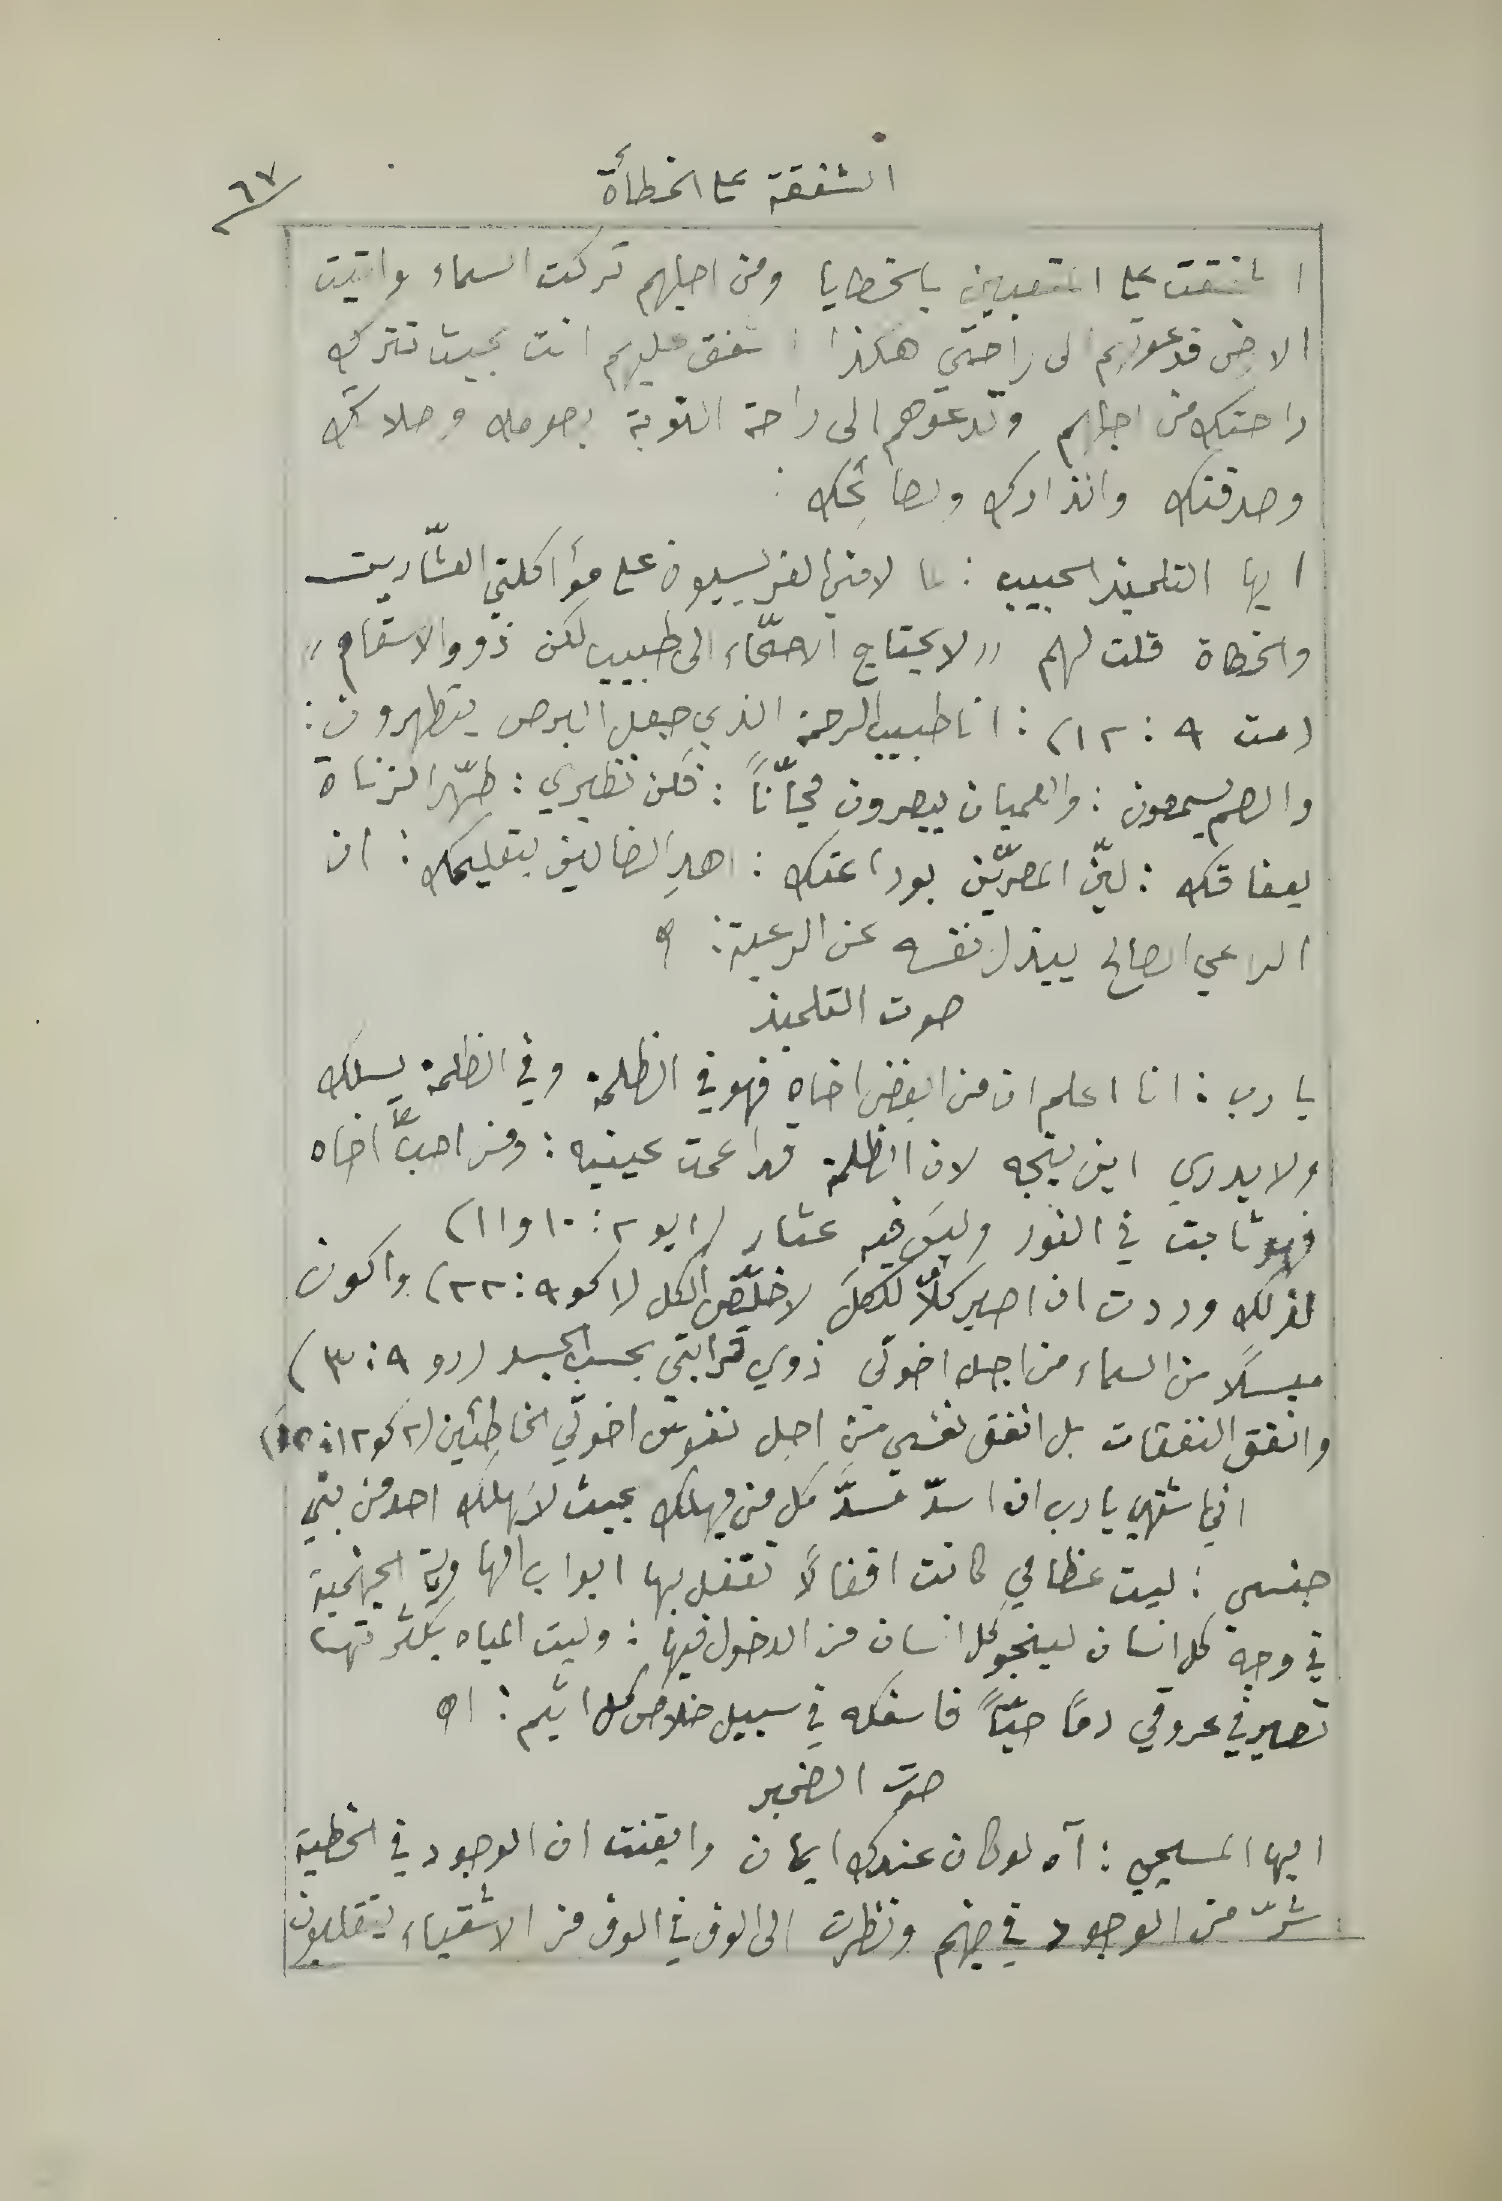 الشفقة على الخطأة
٦٧
اشفقت على المتعبين بالخطايا ومن اجلهم تركت السماء واتيت
الارض فدعوتهم الى راحتي هكذا اشفق عليهم انت بحيث تترك
راحتك من اجلهم وتدعوهم الى راحة التوبة بصومك وصلاتك
وصدقتك وانذارك ونصائحك :
ايها التلميذ الحبيب : لما لامني الفريسيون على مؤاكلتي العشّارين
والخطاة قلت لهم «لا يحتاج الاصحّاء الى طبيب لكن ذوو الاسقام»
(مت ٩ : ١٢) : انا طبيب الرحمة الذي جعل البرص يتطهرون :
والصم يسمعون : والعميان يبصرون مجّاناً : فكن نظيري : طهّر الزناة
بعفافتك : ليّن المصرّين بوداعتك : اهدِ الضالين بتعليمك : ان
الراعي الصالح يبذل نفسه عن الرعية : اه
صوت التلميذ
يا رب : انا اعلم ان من ابغض اخاه فهو في الظلمة وفي الظلمة يسلك
ولا يدري اين يتجه لان الظلمة قد اعمت عينيه : ومن احبّ اخاه
فهو ثابت في النور وليس فيه عثار (١يو ٢ : ١٠ و١١)
لذلك وددت ان اصير كلاً للكل لاخلّص الكل (١كو ٩ : ٢٢) واكون
مبسلاً من السماء من اجل اخوتي ذوي قرابتي بحسب الجسد (رو ٩ : ٣)
وانفق النفقات بل انفق نفسي من اجل نفوس اخوتي الخاطئين (٢كو ١٢ : ١٥)
اني اشتهي يا رب ان اسدّ مسدّ كل من يهلك بحيث لا يهلك احد من بني
جنسي : ليت عظامي كانت اقفالاً تقفل بها ابواب الهاوية الجهنمية
في وجه كل انسان لينجو كل انسان من الدخول فيها : وليت المياه بكثرتها
تصير في عروقي دمًا حيّاً فاسفكه في سبيل خلاص كل اثيم : اه
صوت الضمير
ايها المسيحي : آه لو كان عندك ايمان وايقنت ان الوجود في الخطية
شرّ من الوجود في جهنم ونظرت الى الوف في الوف من الاشقياء يتقلبون